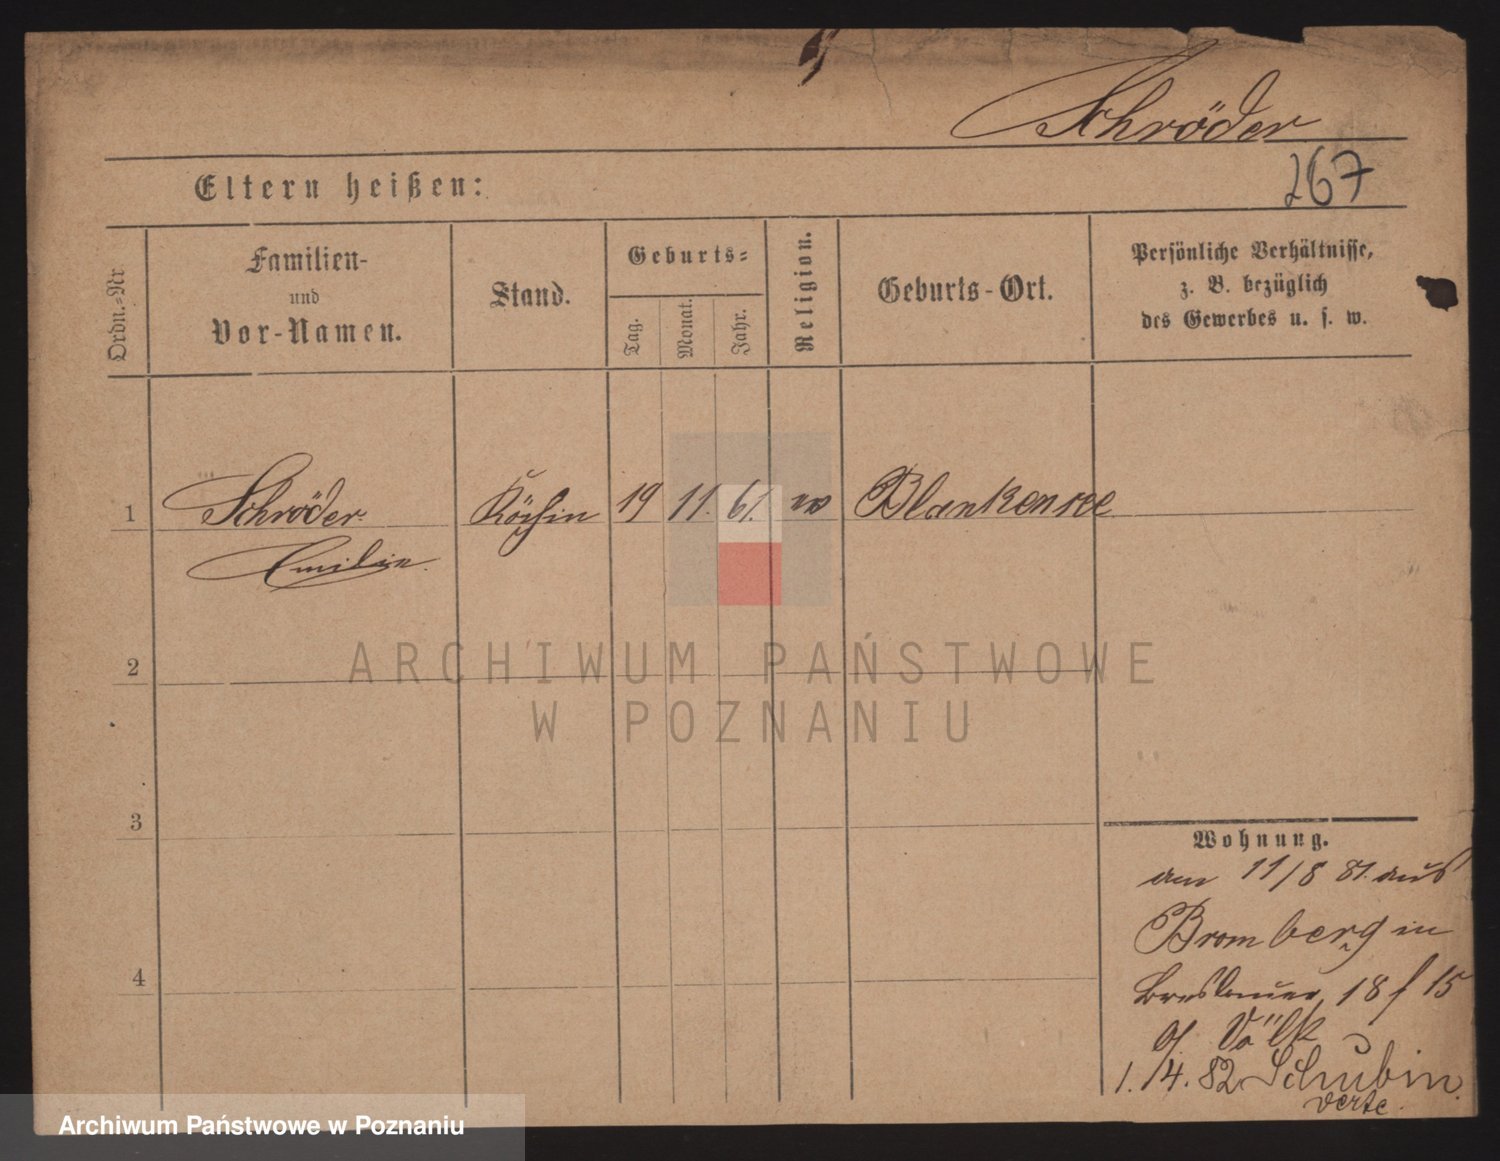 Schröder
267
Eltern heißen:
Ordn.=Nr
Familien-
und
Vor-Namen.
Stand.
Geburts=
Tag.
Monat.
Jahr.
Religion.
Geburts-Ort.
Persönliche Verhältnisse,
z. B. bezüglich
des Gewerbes u. s. w.
1
Schröder
Emilie.
Köchin
19
11.
61.
ev
Blankensee
2
3
4
Wohnung.
am 11/8 81. aus
Bromberg in
Breslauer 18 f 15
Völk
1. 14. 82 Schubin.
verte.
ARCHIWUM PAŃSTWOWE
W POZNANIU
Archiwum Państwowe w Poznaniu